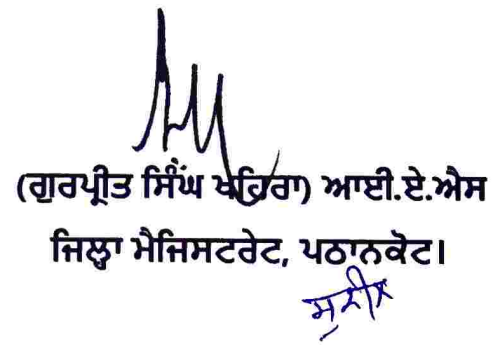 (ਗੁਰਪ੍ਰੀਤ ਸਿੰਘ ਖਹਿਰਾ) ਆਈ.ਏ.ਐਸ
ਜਿਲ੍ਹਾ ਮੈਜਿਸਟਰੇਟ, ਪਠਾਨਕੋਟ।